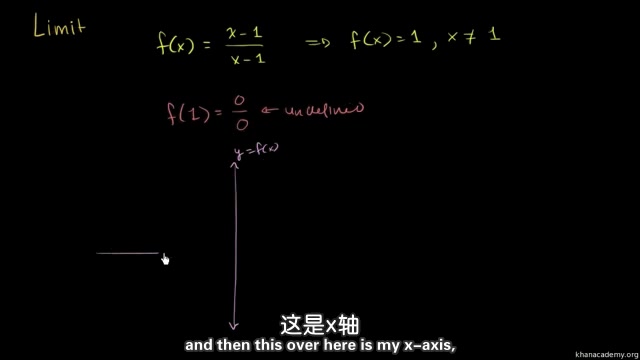 Limit
f(x) = x-1 / x-1 ⇒ f(x) = 1 , x ≠ 1
f(1) = 0 / 0 ← undefined
y = f(x)
这是x轴
and then this over here is my x-axis,
khanacademy.org